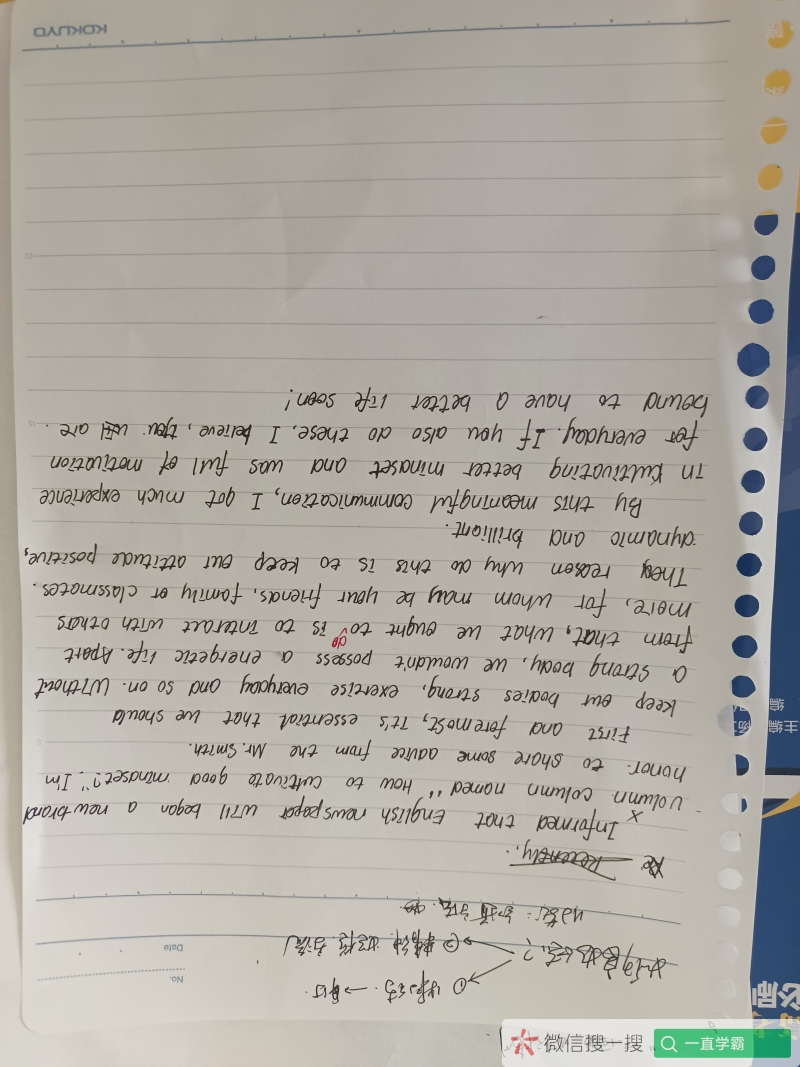 ① 运动 → 身体
如何良好心态?
② 精神
No.
Date
Recently,
Informed that English newspaper will began a new brand
volumn column named "How to cultivate good mindset?". I'm
honor to share some advice from the Mr. Smith.
First and foremost, it's essential that we should
keep our bodies strong, exercise everyday and so on. Without
a strong body, we wouldn't possess a energetic life. Apart
from that, what we ought to do is to interact with others
more, for whom may be your friends, family or classmates.
They reason why do this is to keep our attitude positive,
dynamic and brilliant.
By this meaningful communication, I got much experience
in kultivating better mindset and was full of motivation
for everyday. If you also do these, I believe, you will are
bound to have a better life soon!
KOKUYO
必刷
主编
编
微信搜一搜
一直学霸